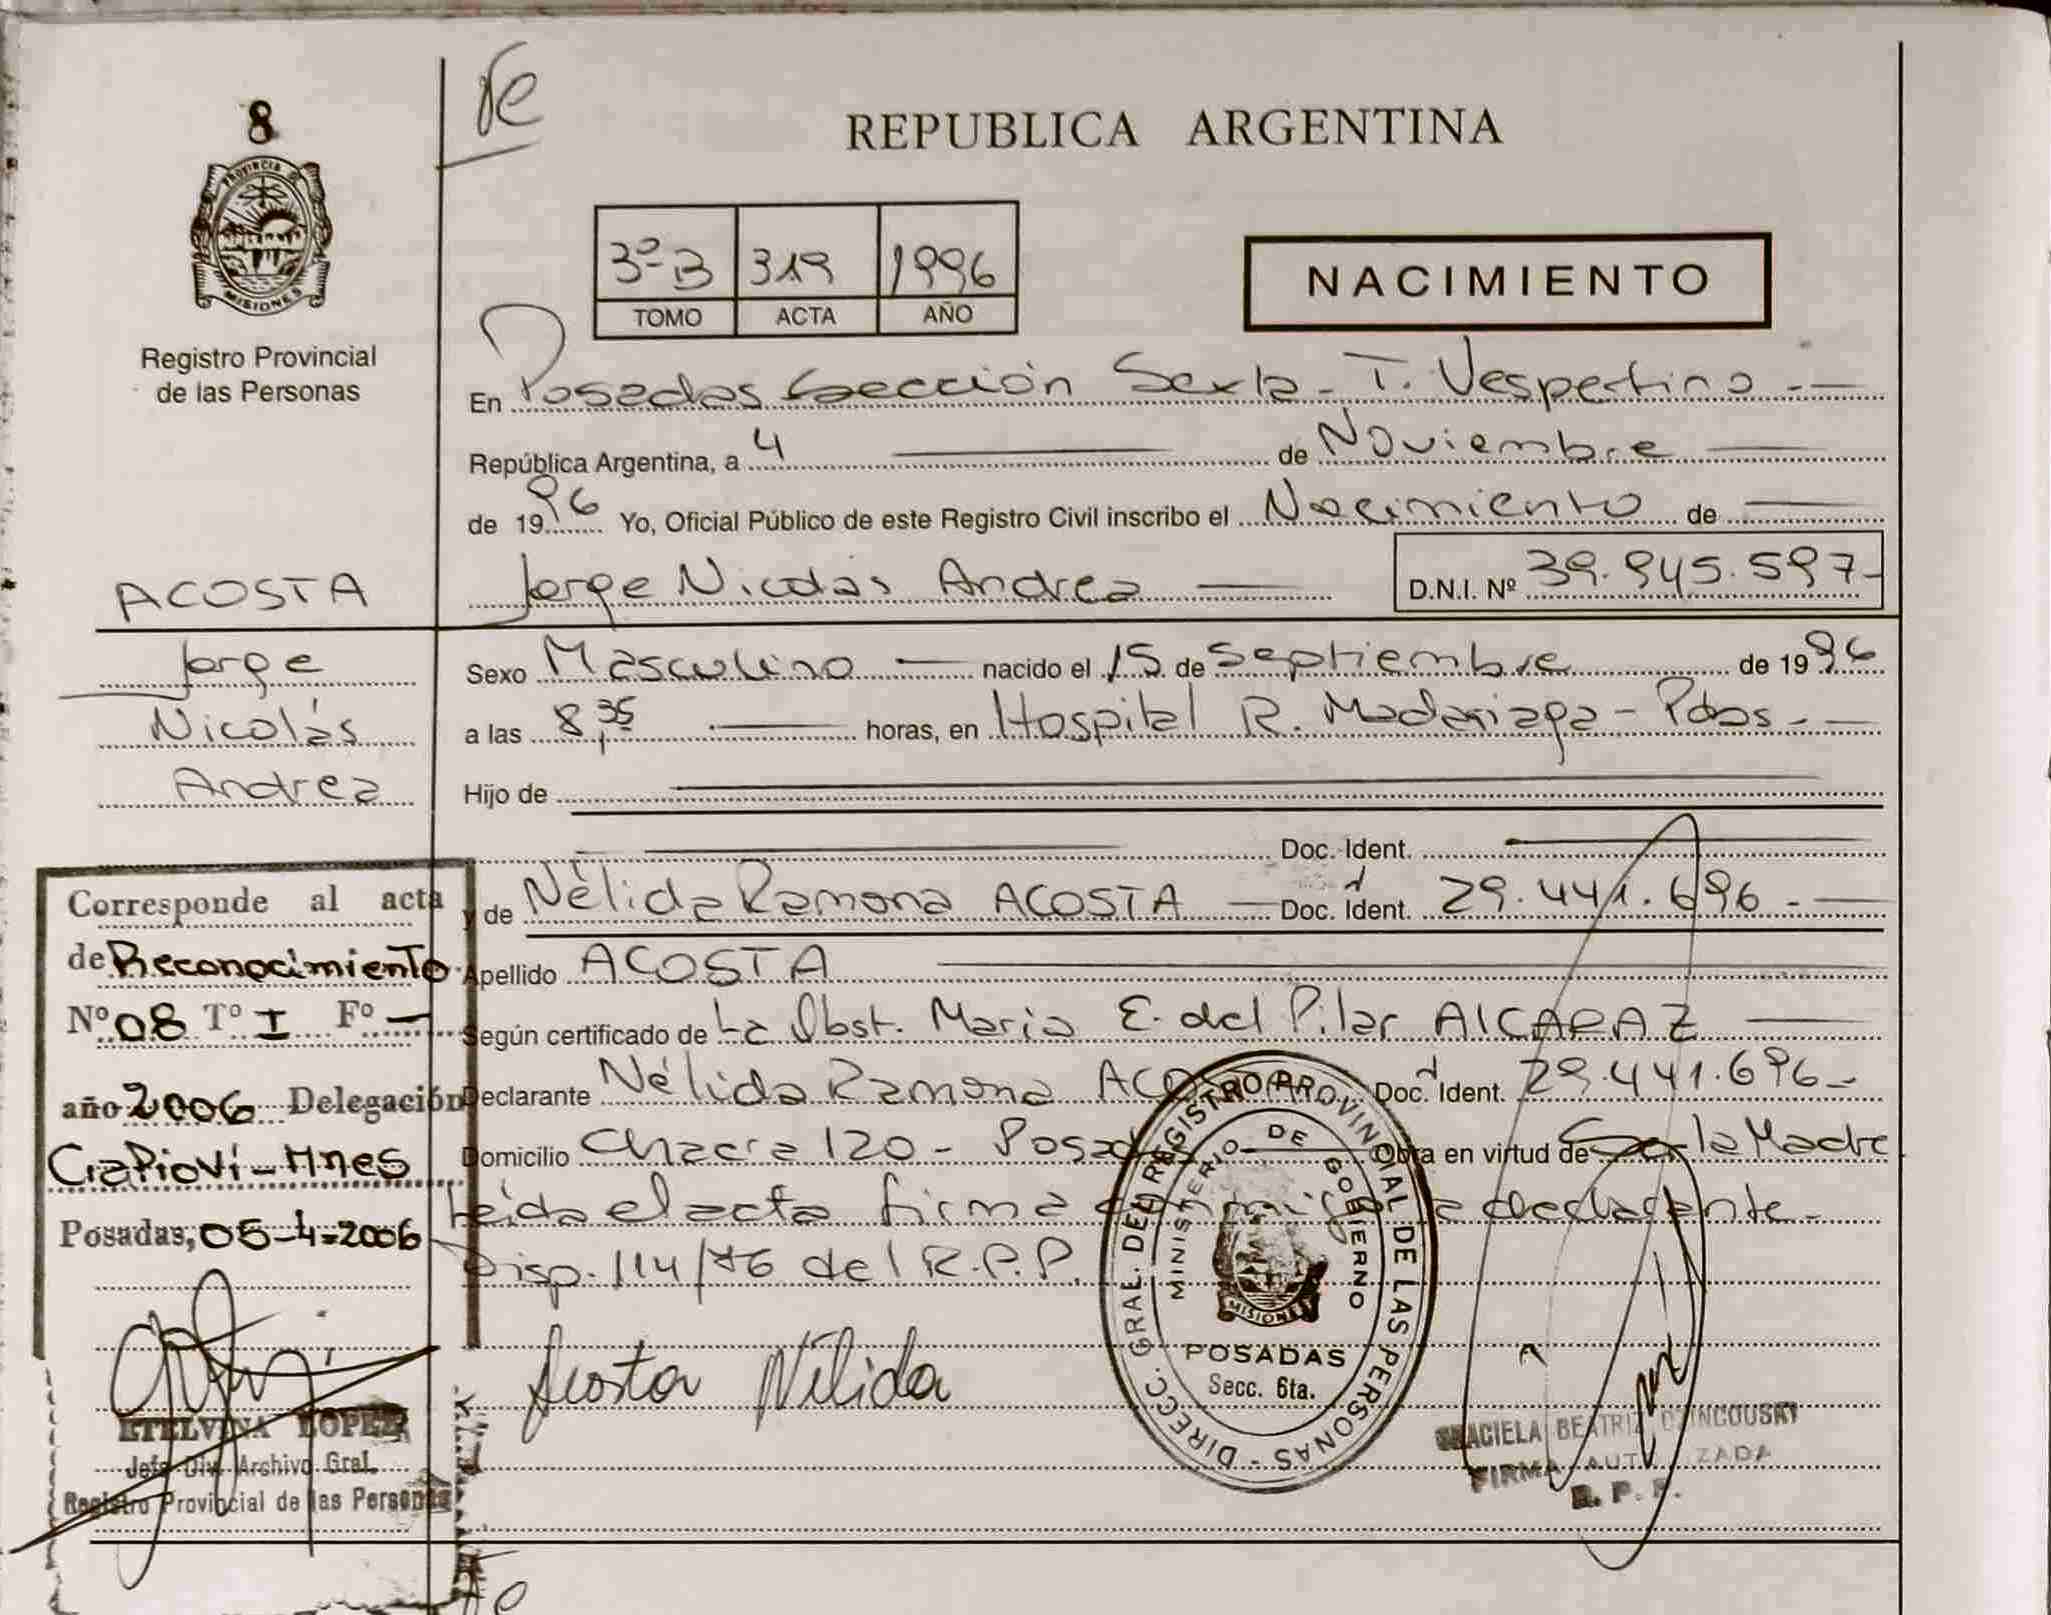 8
PROVINCIA DE
MISIONES
Registro Provincial
de las Personas
REPUBLICA ARGENTINA
3º B 319 1996
TOMO ACTA AÑO
NACIMIENTO
En Posadas Sección Sexta - T. Vespertino -
República Argentina, a 4 de Noviembre
de 1996 Yo, Oficial Público de este Registro Civil inscribo el Nacimiento de
Jorge Nicolás Andrea D.N.I. Nº 39.945.597-
ACOSTA
Jorge
Nicolás
Andrea
Sexo Masculino nacido el 15 de Septiembre de 1996
a las 8,35 horas, en Hospital R. Madariaga - Pdas -
Hijo de
Doc. Ident.
y de Nélida Ramona ACOSTA Doc. Ident. 29.441.696 -
Apellido ACOSTA
Según certificado de La Obst. Maria E. del Pilar ALCARAZ
Declarante Nélida Ramona ACOSTA Doc. Ident. 29.441.696-
Domicilio Chacra 120 - Posadas Obra en virtud de Ser la Madre
Leída el acta firma conmigo la declarante -
Disp. 114/76 del R.P.P.
Acosta Nélida
Corresponde al acta
de Reconocimiento
Nº 08 Tº I Fº -
año 2006 Delegación
Capioví - Mnes
Posadas, 05-4-2006
ETELVINA LOPEZ
Jefa Div. Archivo Gral.
Registro Provincial de las Personas
DIRECC. GRAL. DEL REGISTRO PROVINCIAL DE LAS PERSONAS -
MINISTERIO DE GOBIERNO
MISIONES
POSADAS
Secc. 6ta.
GRACIELA BEATRIZ
FIRMA AUTORIZADA
R. P. P.